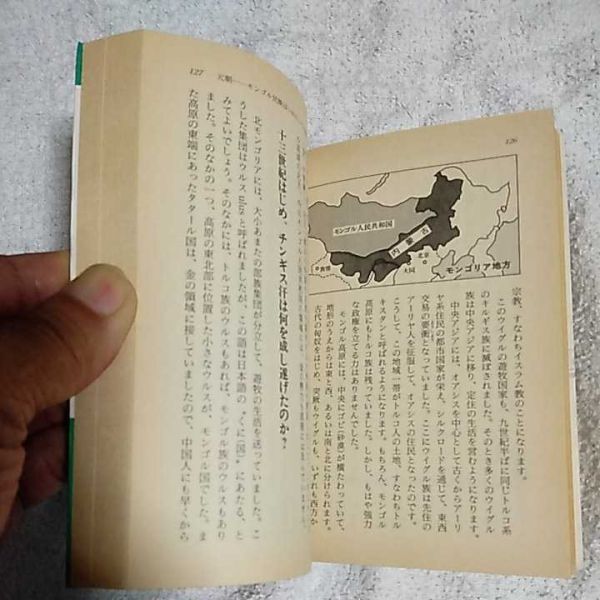 126
モンゴル人民共和国
内蒙古
北京
大同
敦煌
モンゴリア地方
宗教、すなわちイスラム教のことになります。
このウイグルの遊牧国家も、九世紀半ばに同じトルコ系
のキルギス族に滅ぼされました。そのとき多くのウイグル
族は中央アジアに移り、定住の生活を営むようになります。
中央アジアには、オアシスを中心として古くからアーリ
ヤ系住民の都市国家が栄え、シルクロードを通じて、東西
交易の要衝となっていました。ここにウイグル族は先住の
アーリヤ人を征服して、オアシスの住民となったのです。
こうして、この地域一帯がトルコ人の土地、すなわちトル
キスタンと呼ばれるようになります。もちろん、モンゴル
高原にもトルコ族は残っていました。しかし、もはや強力
な政権を立てる力はありませんでした。
モンゴル高原には、中央にゴビ(砂漠)が横たわっていて、
地形のうえからは東と西、あるいは南と北に分けられます。
古代の匈奴をはじめ、突厥もウイグルも、いずれも西方か
127
元朝――モンゴル
十三世紀はじめ、チンギス汗は何を成し遂げたのか?
北モンゴリアには、大小あまたの部族集団が分立して、遊牧の生活を送っていました。こ
うした集団はウルスulusと呼ばれましたが、この語は日本語の〝くに(国)〟にあたる、と
みてよいでしょう。そのなかには、トルコ族のウルスもあれば、モンゴル族のウルスもあり
ました。そのなかの一つ、高原の東北部に位置した小さなウルスが、モンゴル国でした。ま
た高原の東端にあったタタール国は、金の領域に接していましたので、中国人にも早くから